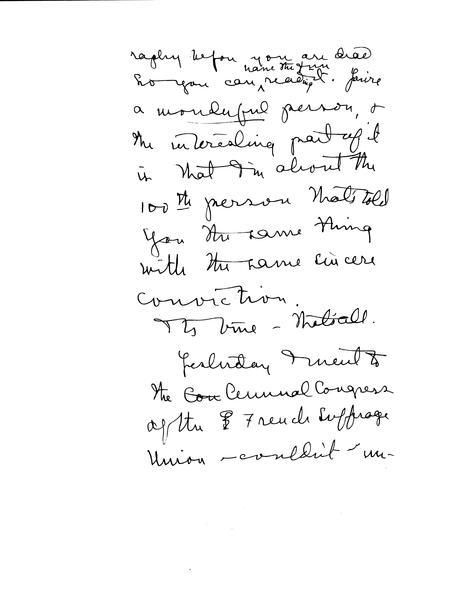 raphy before you are dead
so you can have the fun reading it. You're
a wonderful person, &
the interesting part of it
is that I'm about the
100th person that's told
you the same thing
with the same sincere
conviction.
It's true – that's all.
Yesterday I went to
the Con Cennual Congress
of the F French Suffrage
Union – couldn't – un-